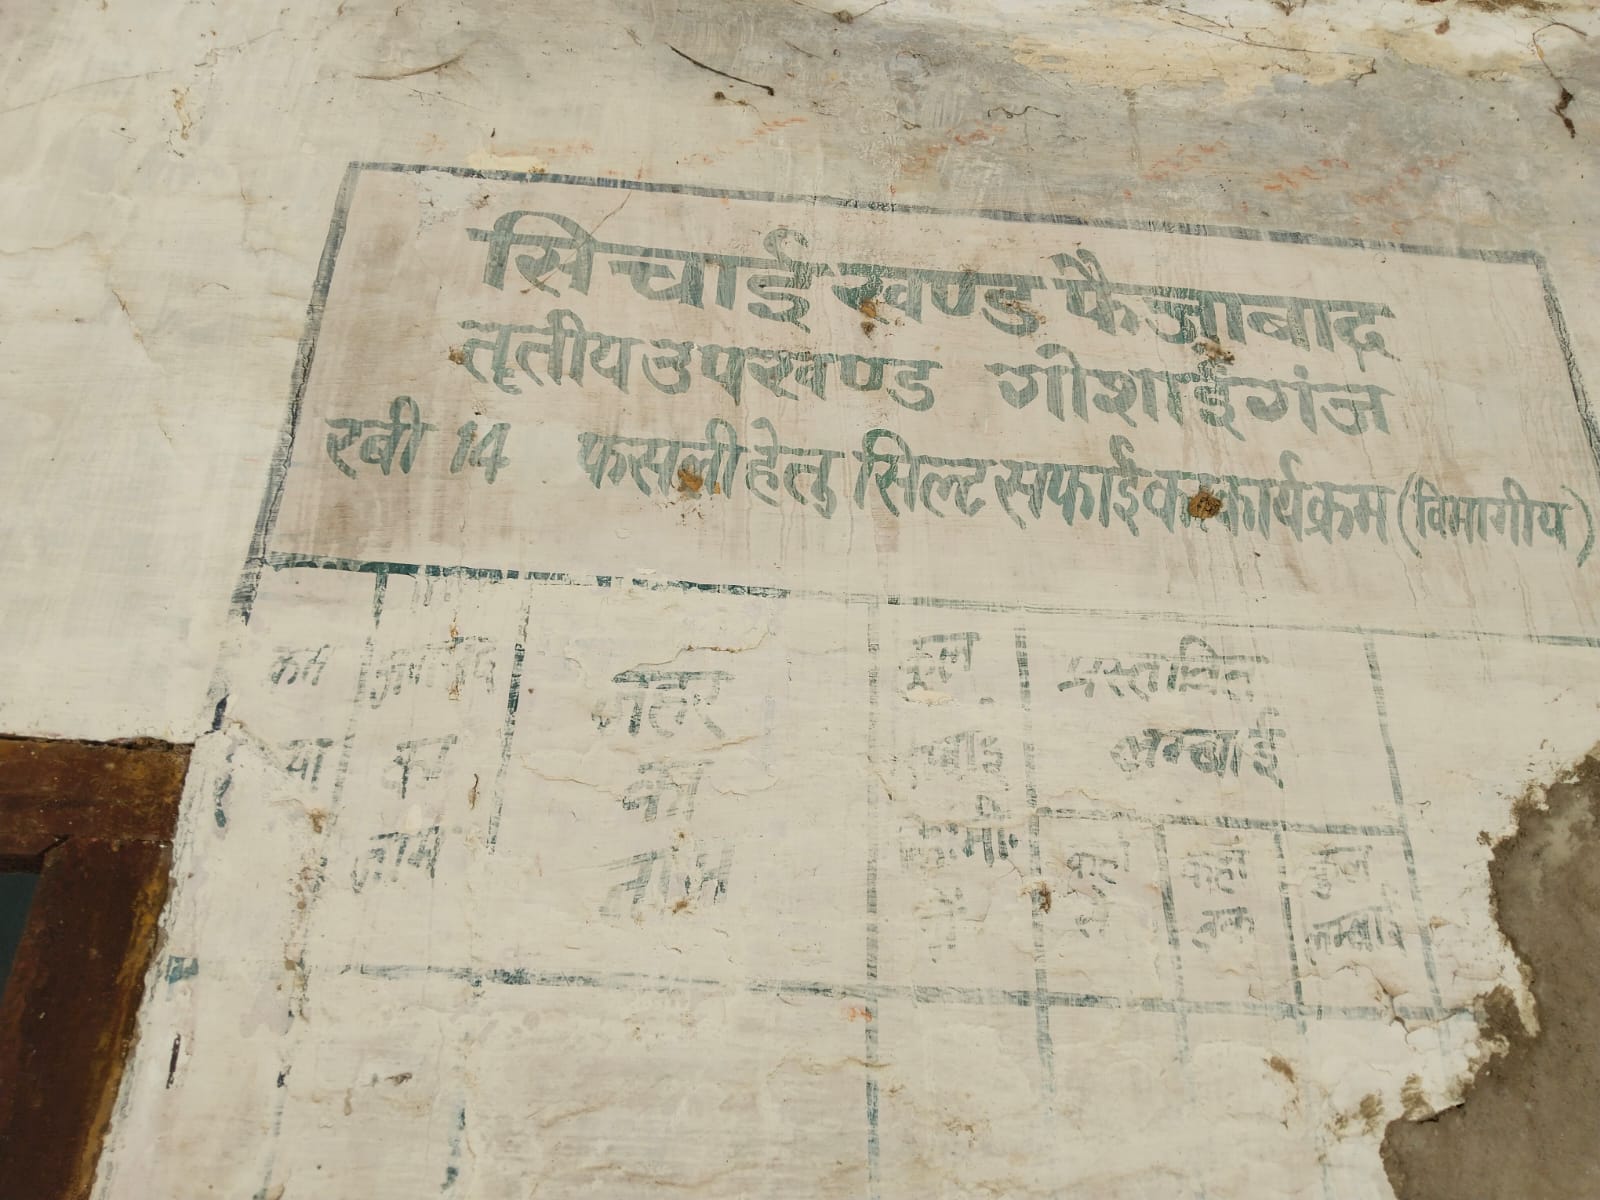 सिचाई खण्ड फैजाबाद
तृतीय उपखण्ड गोशाईगंज
रबी 14 फसली हेतु सिल्ट सफाई का कार्यक्रम (विभागीय)
नहर
का
नाम
कुल
प्रस्तावित
लम्बाई
का
नाम
कहाँ
से
कहाँ
तक
कुल
लम्बाई